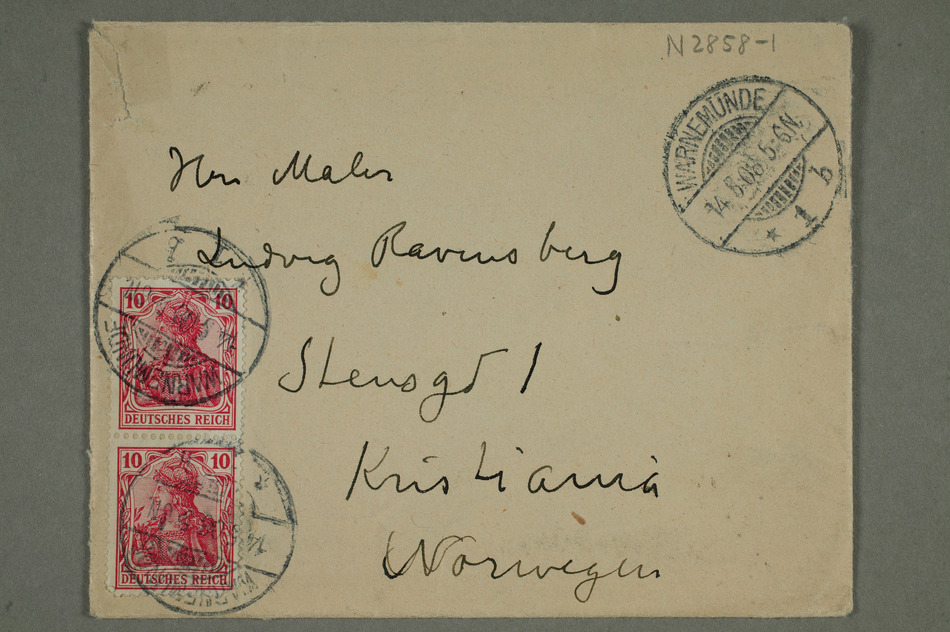 N2858-1
WARNEMÜNDE
14.8.08 5-6N.
* 1 b
Herr Maler
Ludvig Ravensberg
Stensgd 1
Kristiania
Norwegen
10 10
DEUTSCHES REICH
WARNEMÜNDE
10 10
DEUTSCHES REICH